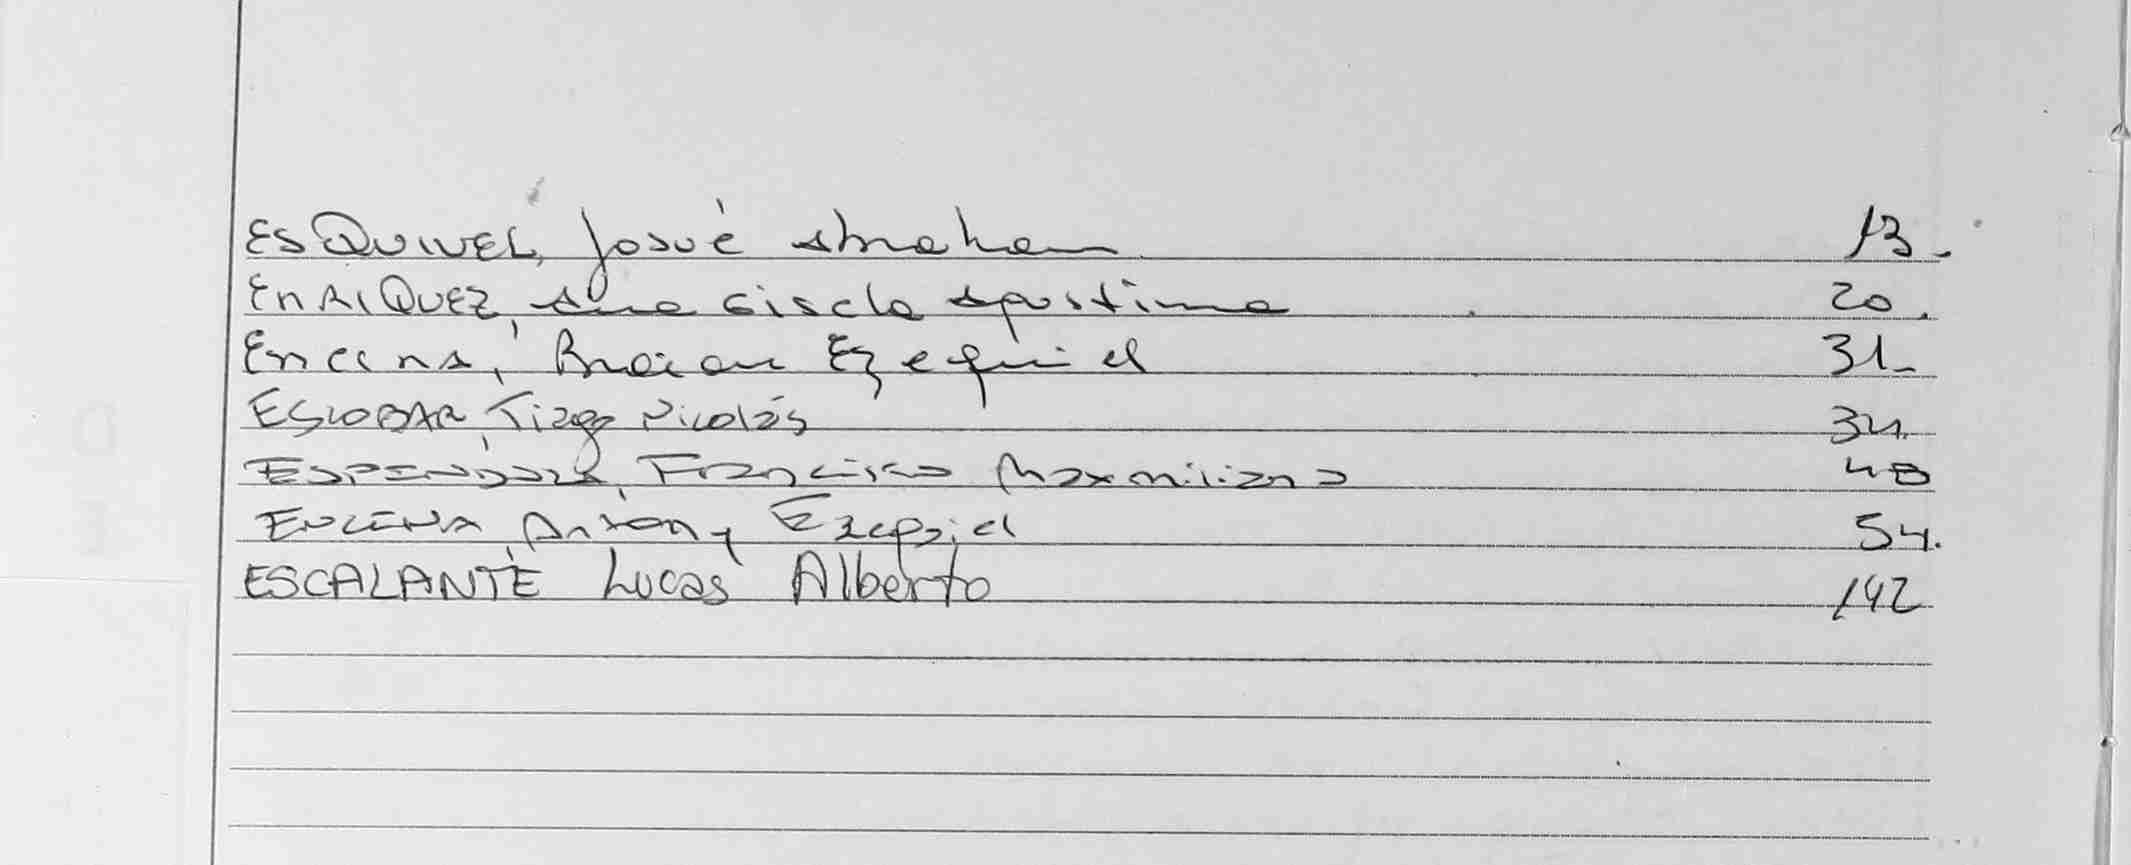 ESQUIVEL, Josué Abraham 13.
EnRIQUEZ, Ana Giscela Agostina 20.
Encina, Braian Ezequiel 31.
ESCOBAR, Tiago Nicolás 34.
ESPINDOLA, Francisco Maxmiliano 48
ENCINA, Antony Ezequiel 54.
ESCALANTE Lucas Alberto 142